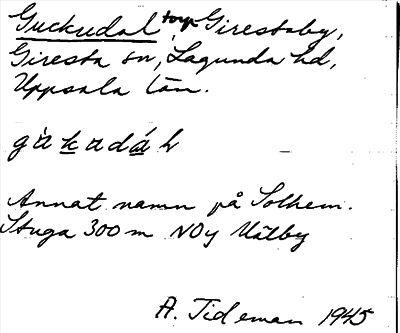 Guckudal torp Girestaby,
Giresta sn, Lagunda hd,
Uppsala län.
Annat namn på Solhem.
Stuga 300 m NOy Välby
A. Tideman 1945